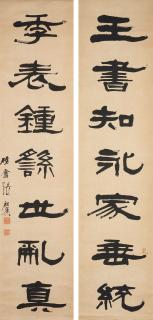 王書知永家垂統
季表鍾繇世亂真